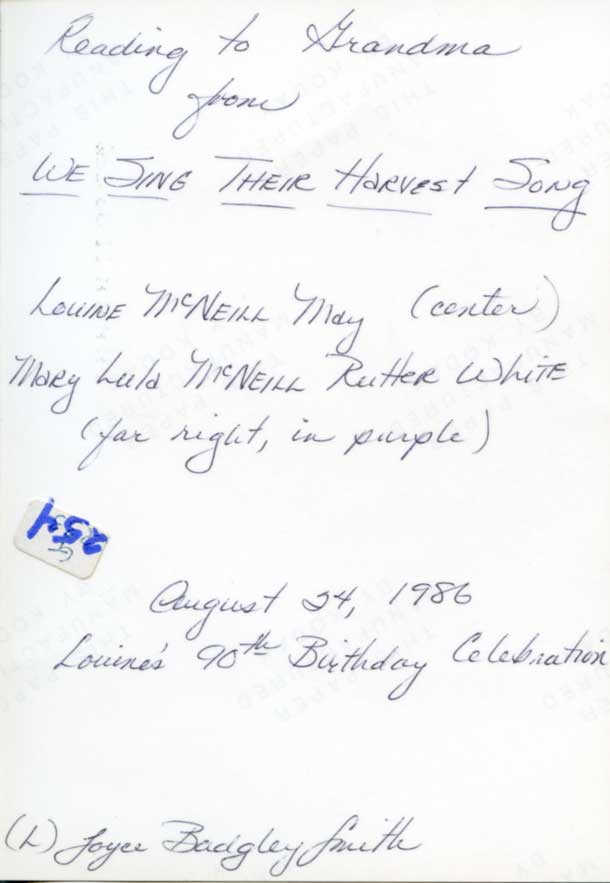 Reading to Grandma
from
WE SING THEIR HARVEST SONG
Louine McNeill May (center)
Mary Lula McNeill Rutter White
(far right, in purple)
254
August 24, 1986
Louine's 90th Birthday Celebration
(L) Joyce Badgley Smith